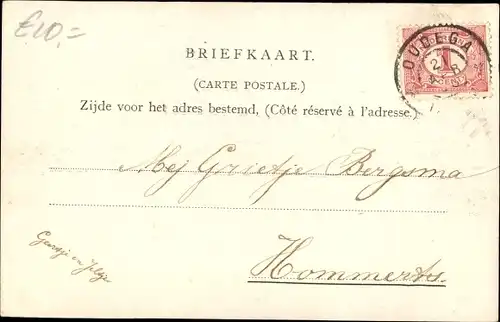 £10,=
OUDEGA
1
BRIEFKAART.
(CARTE POSTALE.)
Zijde voor het adres bestemd, (Côté réservé à l'adresse.)
Mej Grietje Bergsma
Hommerts